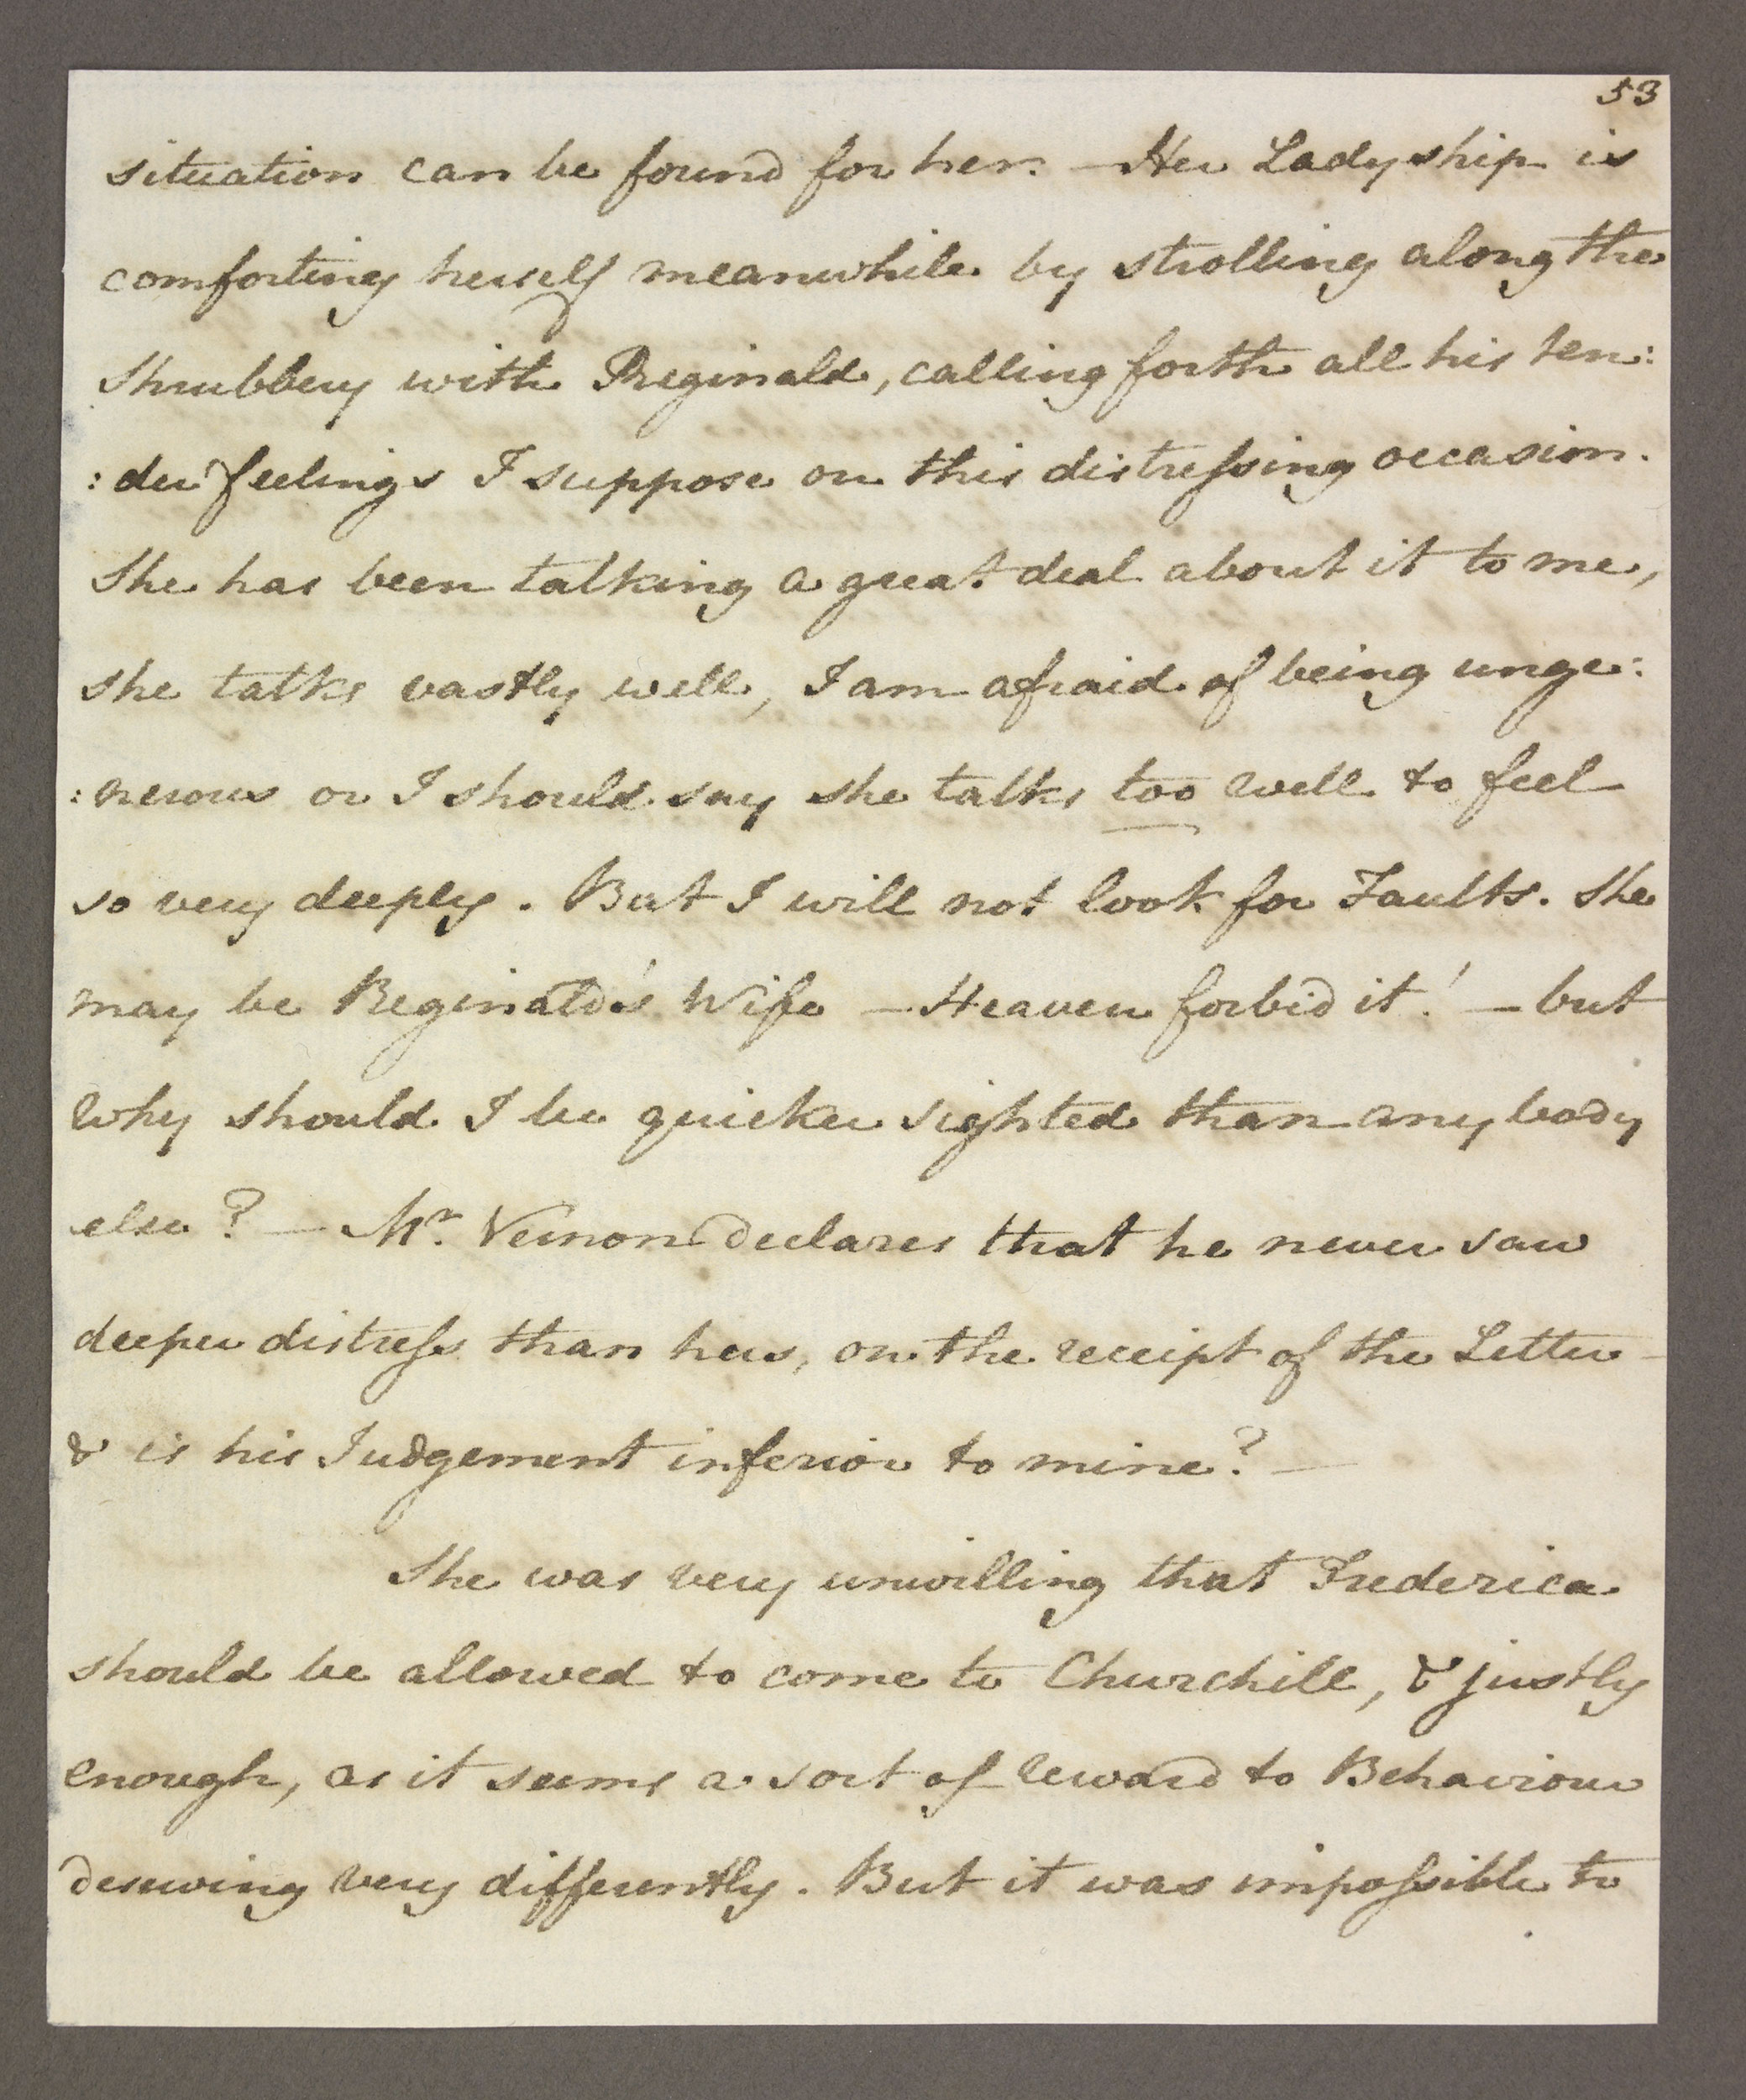 53
situation can be found for her. – Her Ladyship is
comforting herself meanwhile by strolling along the
Shrubbery with Reginald, calling forth all his ten:
:der feelings I suppose on this distressing occasion.
She has been talking a great deal about it to me,
she talks vastly well, I am afraid of being unge:
:nerous or I should say she talks too well to feel
so very deeply. But I will not look for Faults. She
may be Reginald's Wife – Heaven forbid it! – but
why should I be quicker sighted than anybody
else? – Mr. Vernon declares that he never saw
deeper distress than hers, on the receipt of the Letter –
& is his Judgement inferior to mine? –
She was very unwilling that Frederica
should be allowed to come to Churchill, & justly
enough, as it seems a sort of reward to Behaviour
deserving very differently. But it was impossible to